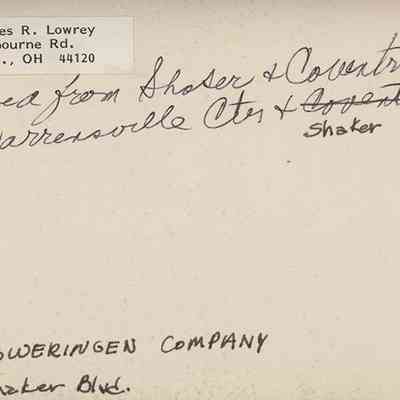 es R. Lowrey
ourne Rd.
., OH 44120
ea from Shaker & Coventr
arrensville Ctr & Covent
Shaker
OWERINGEN COMPANY
haker Blvd.